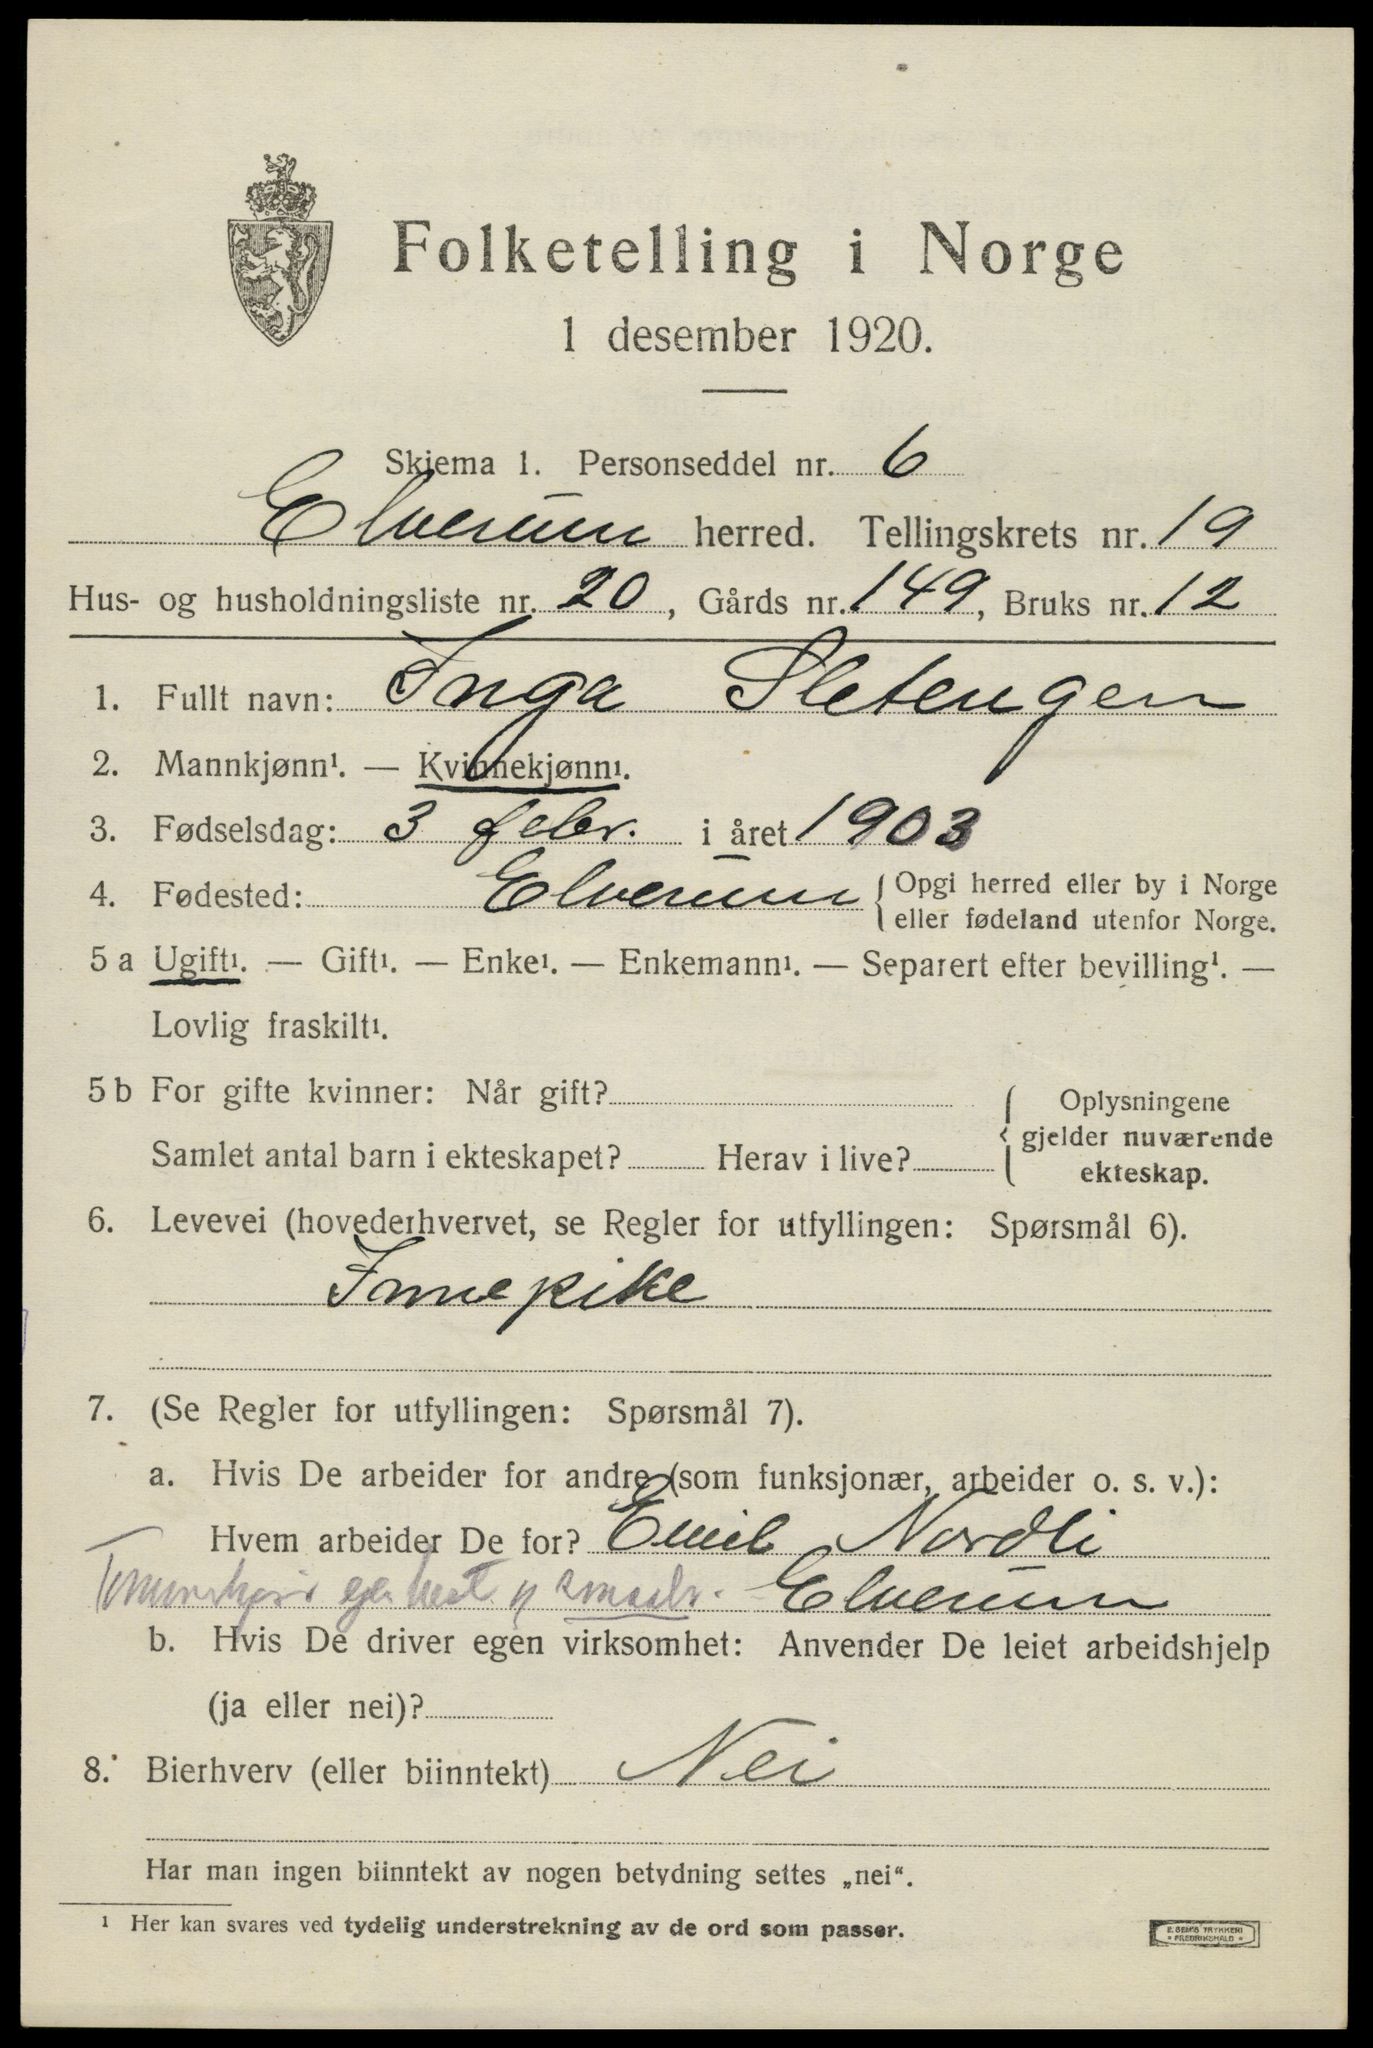 Folketelling i Norge
1 desember 1920.
Skjema 1. Personseddel nr. 6
Elverum herred. Tellingskrets nr. 19
Hus- og husholdningsliste nr. 20, Gårds nr. 149, Bruks nr. 12
1. Fullt navn: Inga Sletengen
2. Mannkjønn¹. — Kvinnekjønn¹.
3. Fødselsdag: 3 febr. i året 1903
4. Fødested: Elverum { Opgi herred eller by i Norge
eller fødeland utenfor Norge.
5 a Ugift¹. — Gift¹. — Enke¹. — Enkemann¹. — Separert efter bevilling¹. —
Lovlig fraskilt¹.
5 b For gifte kvinner: Når gift?
Samlet antal barn i ekteskapet? Herav i live?
{ Oplysningene
gjelder nuværende
ekteskap.
6. Levevei (hovederhvervet, se Regler for utfyllingen: Spørsmål 6).
Innepike
7. (Se Regler for utfyllingen: Spørsmål 7).
a. Hvis De arbeider for andre (som funksjonær, arbeider o. s. v.):
Hvem arbeider De for? Emil Nordli
Elverum
b. Hvis De driver egen virksomhet: Anvender De leiet arbeidshjelp
(ja eller nei)?
8. Bierhverv (eller biinntekt) Nei
Har man ingen biinntekt av nogen betydning settes „nei“.
¹ Her kan svares ved tydelig understrekning av de ord som passer.
E. SEM'S TRYKKERI
• FREDRIKSHALD •